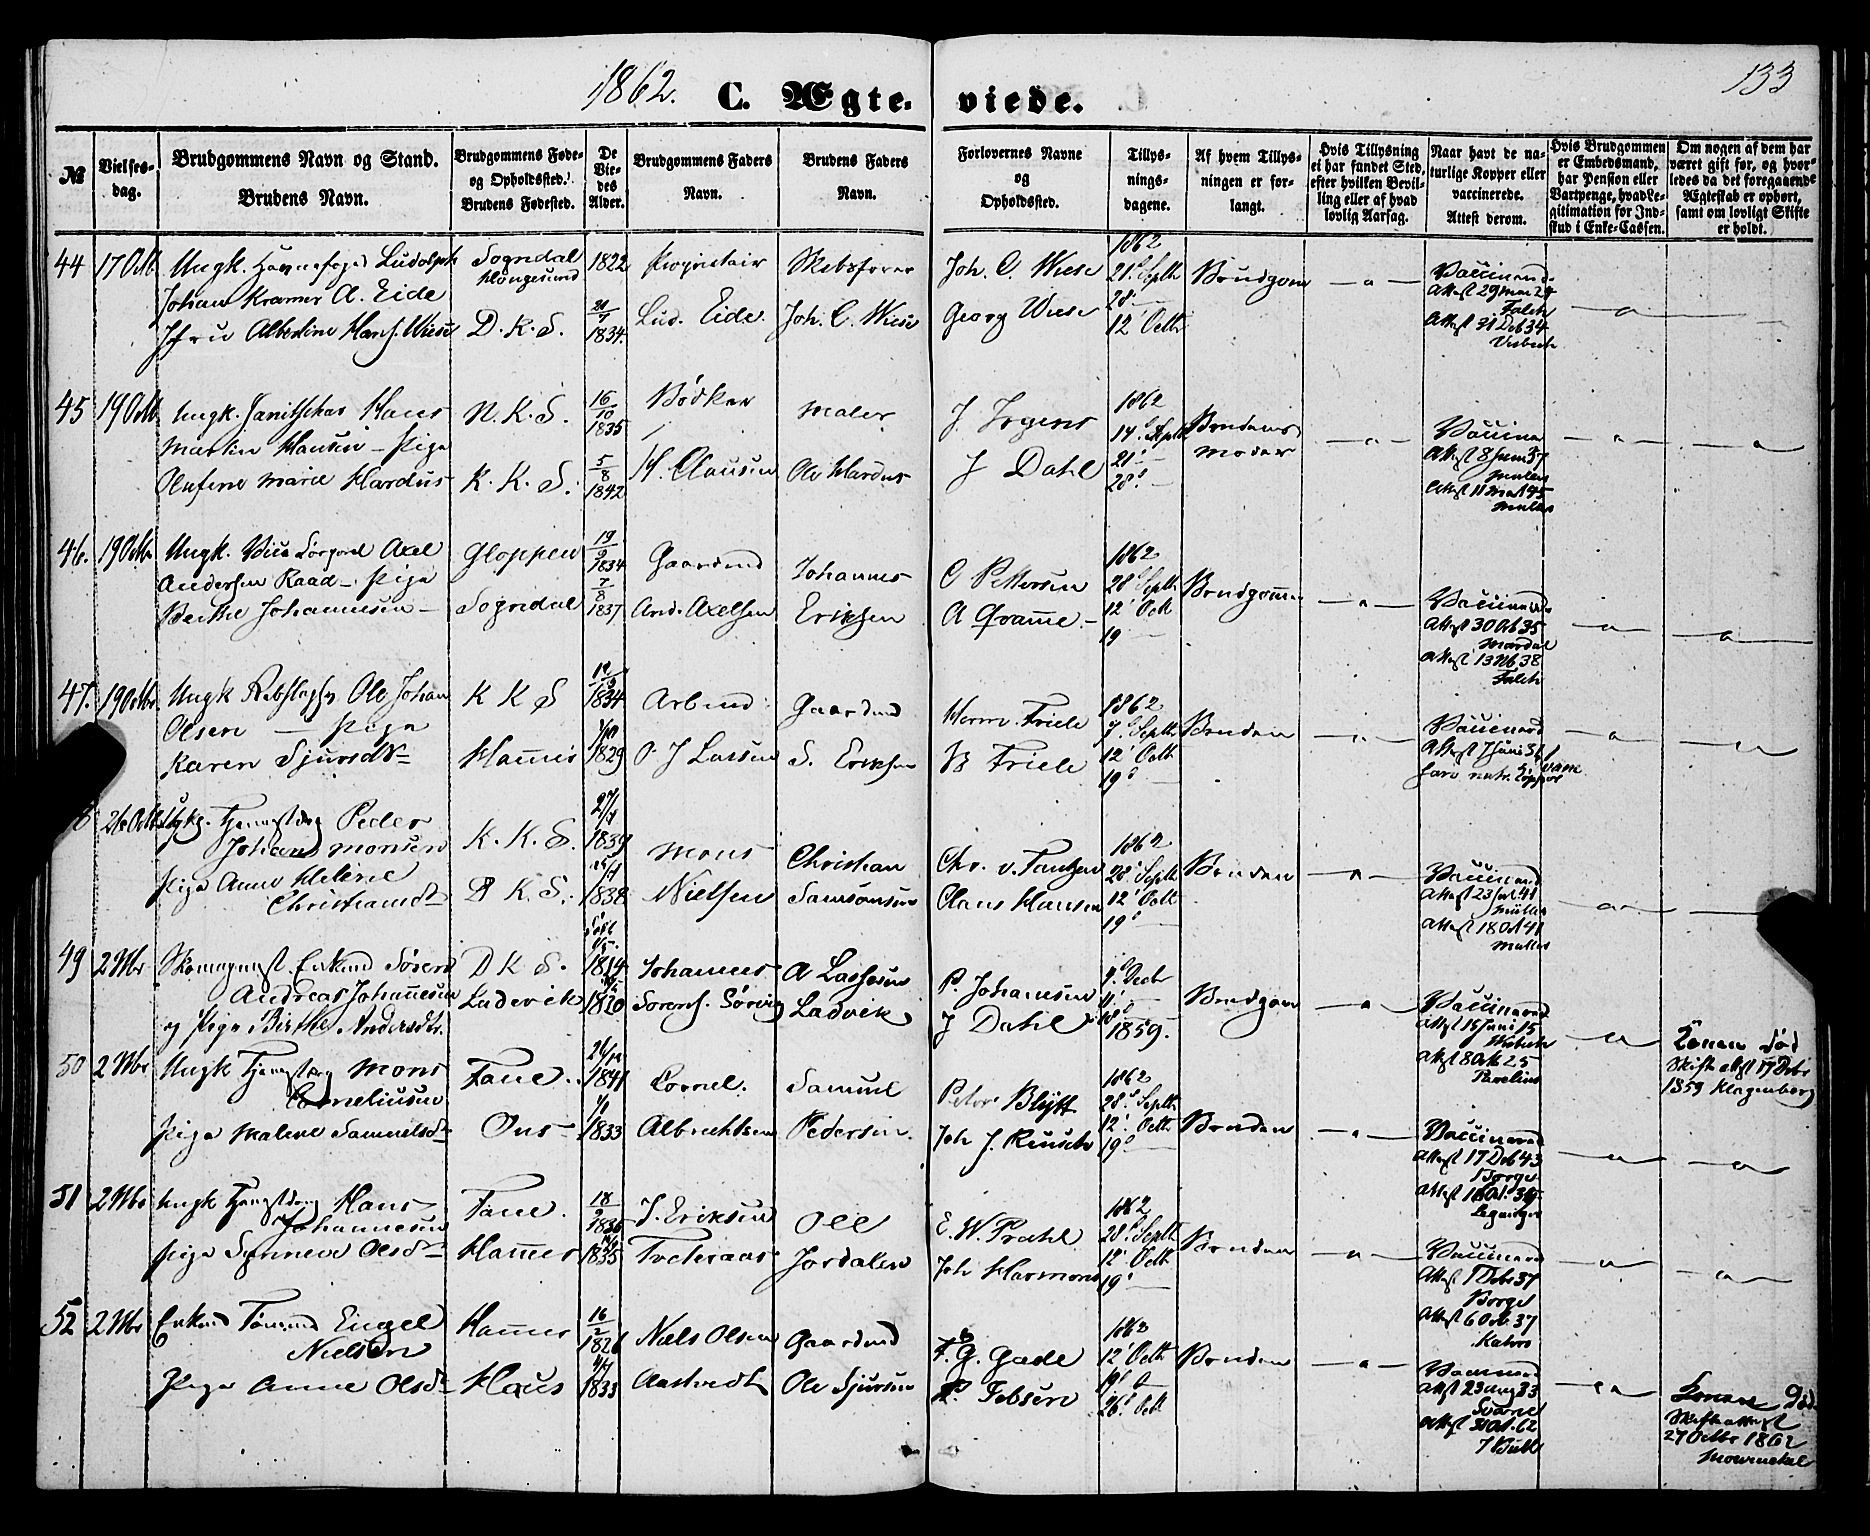 1862.
C. Ægte-viede.
133
№
Vielses-dag.
Brudgommens Navn og Stand.
Brudens Navn.
Brudgommens Føde-
og Opholdssted.
Brudens Fødested.
De Vie-des Alder.
Brudgommens Faders
Navn.
Brudens Faders
Navn.
Forlovernes Navne
og
Opholdssted.
Tillys-
nings-
dagene.
Af hvem Tillys-
ningen er for-
langt.
Hvis Tillysning
ei har fundet Sted,
efter hvilken Bevil-
ling eller af hvad
lovlig Aarsag.
Naar havt de na-
turlige Kopper eller
vaccinerede.
Attest derom.
Hvis Brudgommen
er Embedsmand,
har Pension eller
Vartpenge, hvad Le-
gitimation for Ind-
skud i Enke-Cassen.
Om nogen af dem har
været gift før, og hvor-
ledes da det foregaaende
Ægteskab er ophørt,
samt om lovligt Skifte
er holdt.
44 17 Octb Ungk. Havnefoged Ludolph
Johan Kramer A. Eide
Jfru Albertine Wiese
Sogndal
D. K. S.
1822
1834
Proprietair
Lud. Eide
Skibsfører
Joh. C. Wiese
Joh. C. Wiese
Georg Wiese
1862
21 Septb
28
12 Octb
Brudgom
Vaccinerede
Attest 29 Mai 24
Falch
Attest 31 Deb 34
45 19 Octb Ungk. Janitschar Hans
Martin Hansen - Pige
Olufine Marie Hardus
N. K. S.
K. K. S.
16/10 1835
5/8 1842
Bødker
H. Clausen
Maler
Ole Hardus
J. Irgens
J Dahl
1862
14 Septb
21
28
Brudens
Moder
Attest 8 Juni 37
46. 19 Octb Ungk. Axel
Andersen Raad - Pige
Berthe Johannesen
Gloppen
Sogndal
19/9 1834
7/8 1837
Gaardmd
And. Axelsen
Johannes
Eriksen
C Pettersen
A Qvamme
1862
28 Septb
12 Octb
19
Brudgommen
Vaccinerede
Attest 30 Ob 35
Attest 13 Nb 38
Falch
47. 19 Octbr Ungk Rebslager Ole Johan
Olsen - Pige
Karen Sjursdtr
K K S
Hammer
1834
1829
Arbmd
O J Lassen
Gaardmd
S. Eriksen
Herm. Friele
B Friele
1862
7 Septb
12 Octb
19
Bruden
Vaccinered
Attest 7 Juni 36
26 Octb Peder
Johan Monsen
Pige Anne Helene
Christiansdtr
K. K. S.
D K. S.
1839
1838
Mons
Nielsen
Christian
Samsonsen
Chr. v. Tangen
Claus Hansen
1862
28 Septb
12 Octb
19
Bruden
Vaccinered
Attest 23 Jul. 41
Müller
Attest 18 Ob 41
Müller
49 2 Nbr Skomagermst. Enkemd Søren
Andreas Johannesen
og Pige Birthe Andersdtr.
D K S.
Ladevik
1814
1820
Johannes
Sørensen
A Lassesen
Ladvik
P. Johansen
J Dahl
4 Decbr
11
18
1859.
Brudgom
Vaccinered
Attest 15 Juni 15
Attest 8 Ob 25
Konen død
Skifteattest 17 Debr
1859 Klagenberg
50 2 Nbr Ungk Mons
Corneliusen
Pige Malene Samuelsd
Fane
Ous
1841
1833
Cornel.
Albrethsen
Samuel
Pedersen.
Peter Blytt
Joh J. Reusch
1862
28 Septb
12 Octb
19
Bruden
Vaccinered
Attest 17 Deb 43
51 2 Nbr Ungk Hans
Johannesen
Pige Synneve Olsd
Fane.
Hammer
18/9 1836
1835
J. Eriksen
Tveteraas
Ole
Jordalen
E. W. Prahl.
Joh Harmens
1862
28 Septb
12 Octb
19
Bruden
Vaccinered
Attest 1 Debr 37
Attest 6 Ob 37
52 2 Nbr Enkmd Tømmmd Engel
Nielsen
Pige Anne Olsd
Hammer
Haus
16/2 1826
1833
Niels Olsen
Gaardmd
Ole Sjursen
F. G. Gade
P. Jebsen
1862
12 Octb
19
26 Octb
Bruden
Attest 23 Aug 33
Konen død.
Skifteattest
27 Octbr 1862